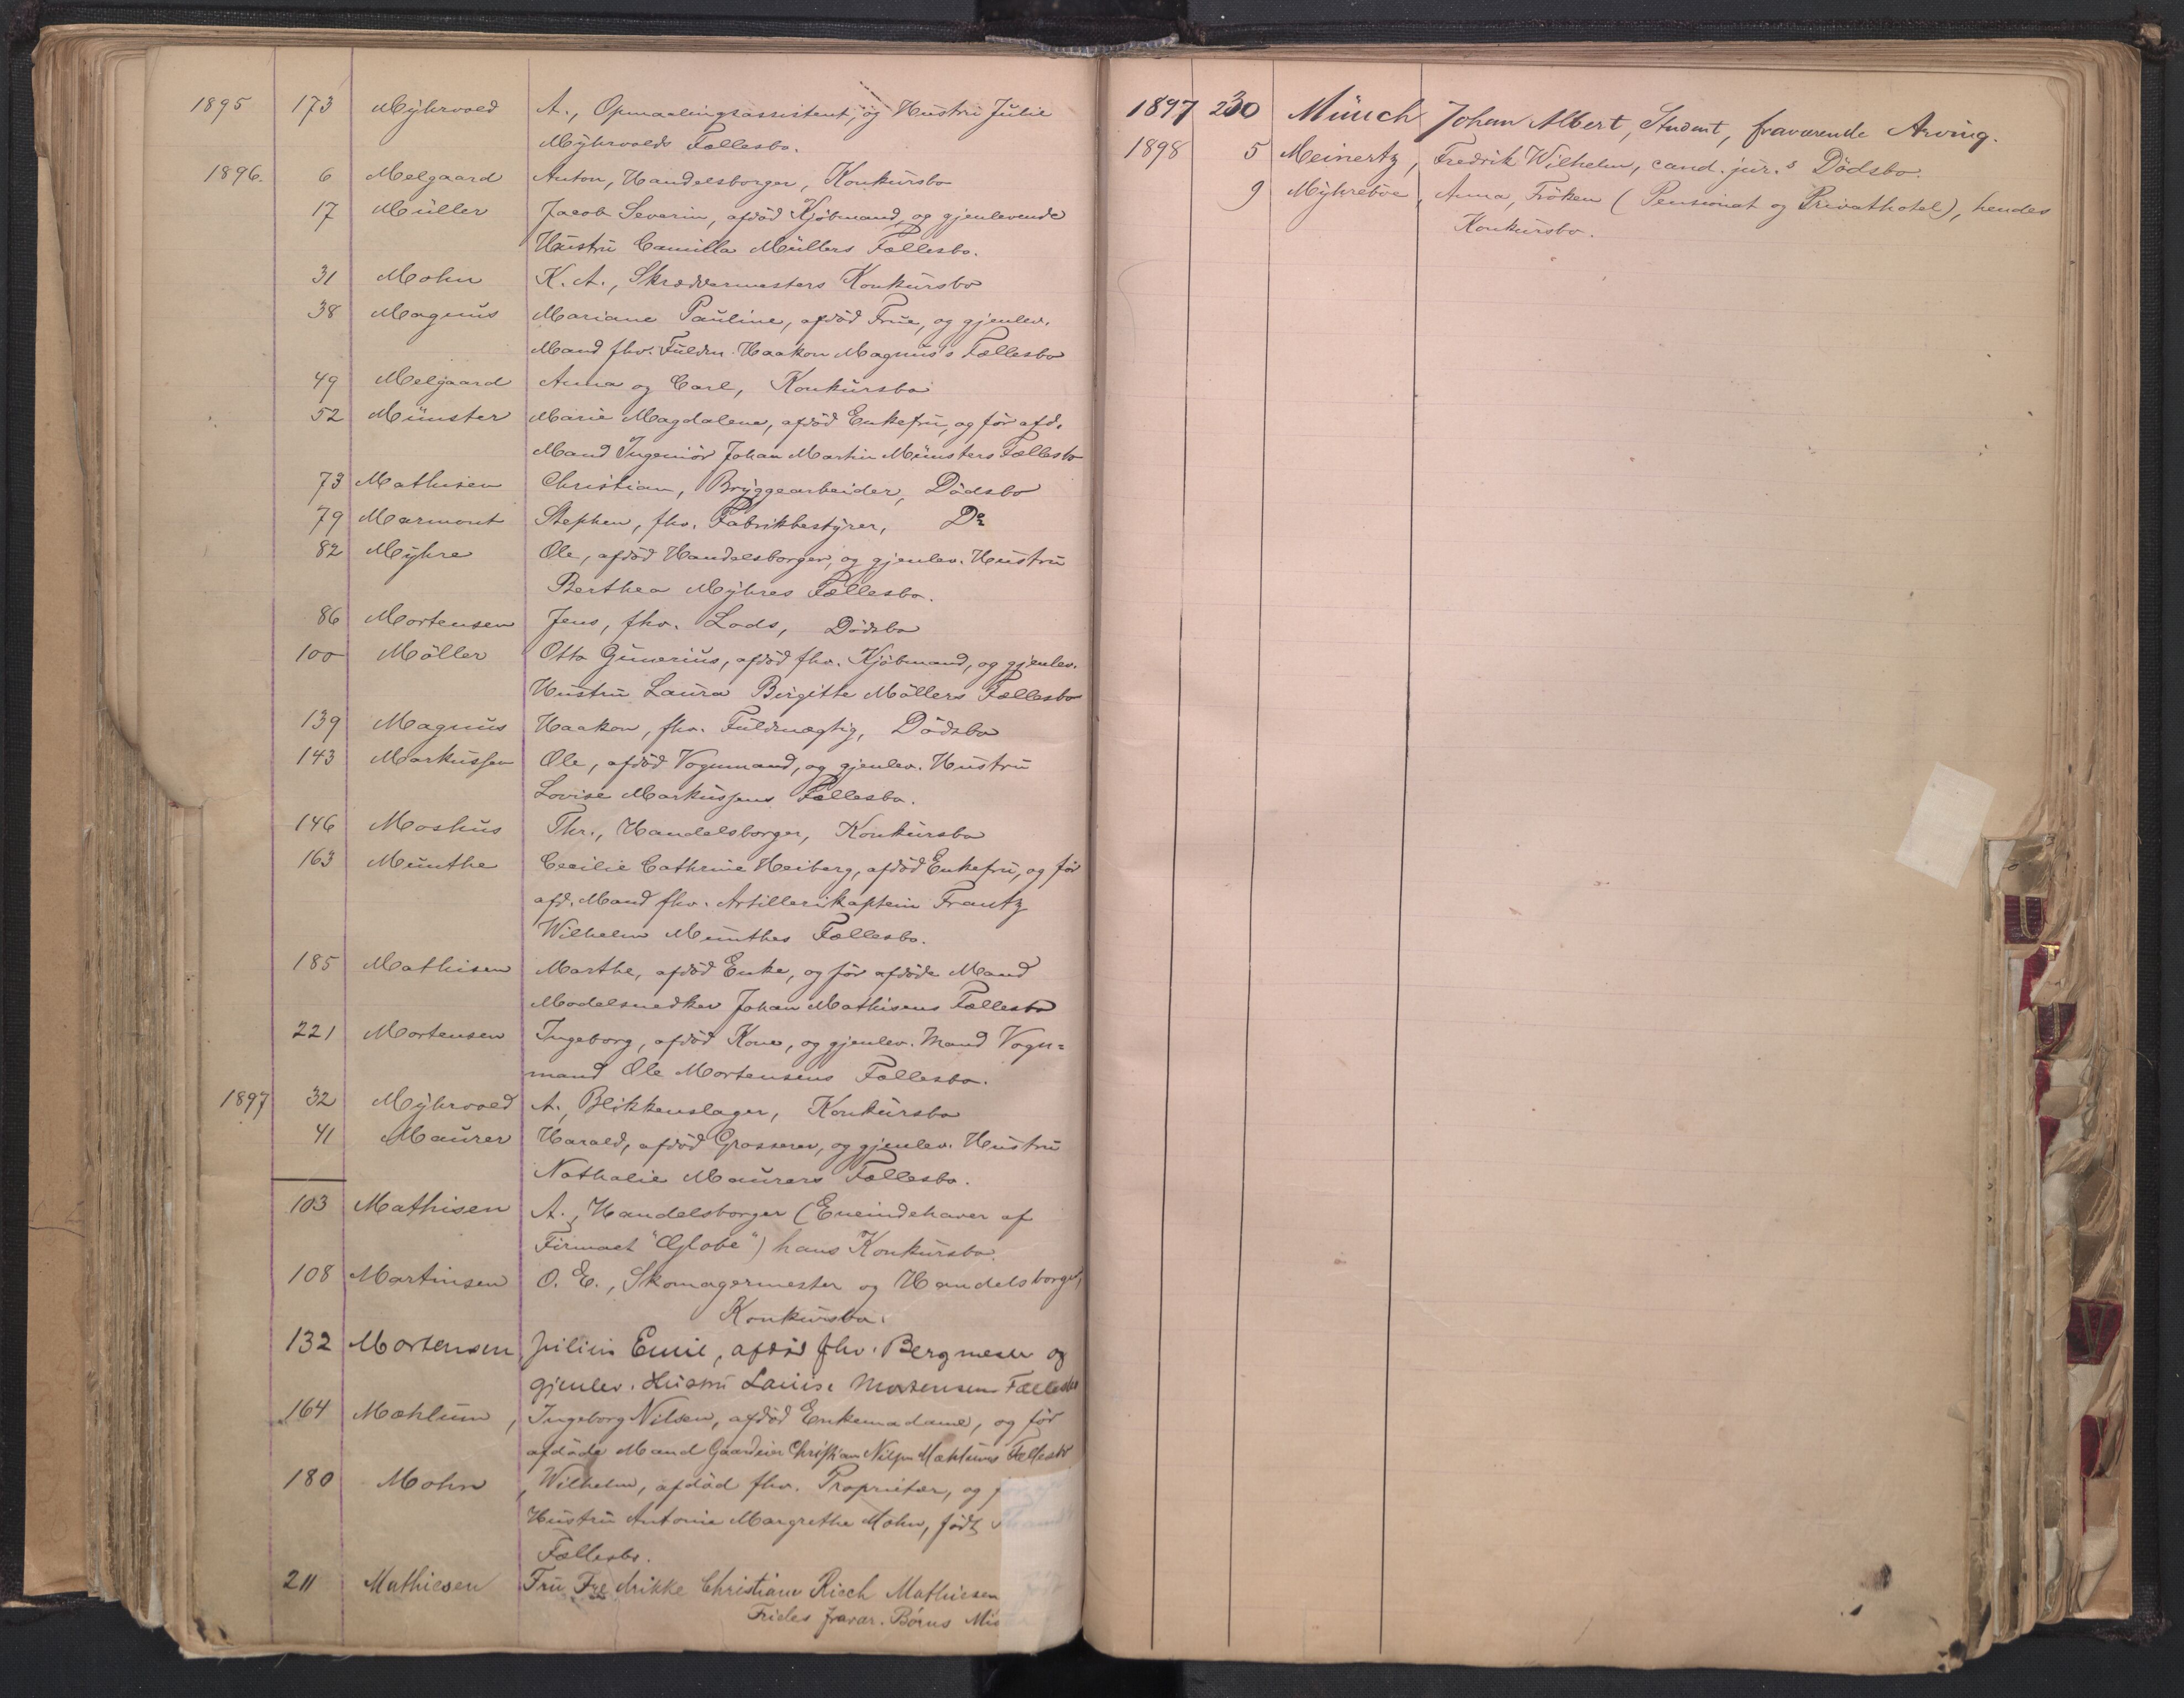 1895 173 Myhrvold A., Opmaalingsassistent, og Hustru Julie
Myhrvolds Fællesbo.
1896. 6 Melgaard Anton, Handelsborger, Konkursbo
17 Müller Jacob Severin, afdöd Kjöbmand, og gjenlevende
Hustru Camilla Müllers Fællesbo.
31 Mohn K. A., Skræddermesters Konkursbo
38 Magnus Mariane Pauline, afdöd Frue, og gjenlev.
Mand fhv. Fuldm. Haakon Magnus's Fællesbo
49 Melgaard Anna og Carl, Konkursbo
52 Münster Marie Magdalene, afdöd Enkefru, og för afd.
Mand Ingeniör Johan Martin Münsters Fællesbo
73 Mathisen Christian, Bryggearbeider, Dödsbo
79 Marmont Stephen, fhv. Fabrikbestyrer, Do
82 Myhre Ole, afdöd Handelsborger, og gjenlev. Hustru
Berthea Myhres Fællesbo.
86 Mortensen Jens, fhv. Lods, Dödsbo
100 Möller Otto Gunerius, afdöd fhv. Kjöbmand, og gjenlev.
Hustru Laura Birgitte Möllers Fællesbo
139 Magnus Haakon, fhv. Fuldmægtig, Dödsbo
143 Markussen Ole, afdöd Vognmand, og gjenlev. Hustru
Lovise Markussens Fællesbo.
146 Moshus Thr., Handelsborger, Konkursbo
163 Munthe Cecilie Cathrine Heiberg, afdöd Enkefru, og för
afd. Mand fhv. Artillerikaptein Frantz
Wilhelm Munthes Fællesbo.
185 Mathisen Marthe, afdöd Enke, og för afdöde Mand
Modelsnedker Johan Mathisens Fællesbo
221 Mortensen Ingeborg, afdöd Kone, og gjenlev. Mand Vogn=
mand Ole Mortensens Fællesbo.
1897 32 Myhrvold A., Blikkenslager, Konkursbo
41 Maurer Harald, afdöd Grosserer, og gjenlev. Hustru
Nathalie Maurers Fællesbo.
103 Mathisen A., Handelsborger (Eneindehaver af
Firmaet "Globe") hans Konkursbo.
108 Martinsen O. E., Skomagermester og Handelsborger,
Konkursbo.
132 Mortensen Julius Emil, afdöd fhv. Bergmester og
gjenlev. Hustru Louise Mortensens Fællesbo
164 Mæhlum, Ingeborg Nilsen, afdöd Enkemadame, og för
afdöde Mand Gaardeier Christian Nilsen Mæhlums Fællesbo
180 Mohn, Wilhelm, afdöd fhv. Proprietær, og
Hustru Antonie Margrethe Mohn, födt
Fællesbo.
211 Mathiesen Fru Fredrikke Christiane Mathiesen
fravær. Börns
1897 230 Münch Johan Albert, Student, fraværende Arving.
1898 5 Meinertz, Fredrik Wilhelm, cand. jur.s Dödsbo.
9 Myhreböe, Anna, Fröken (Pensionat og Privathotel), hendes
Konkursbo.